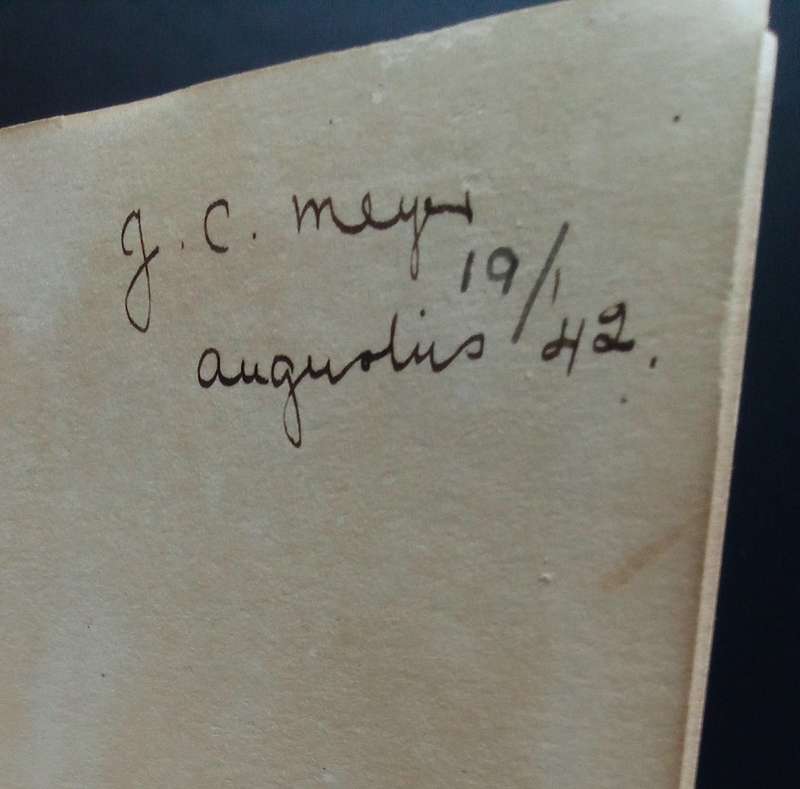 J. C. Meyer
augustus 19/42.